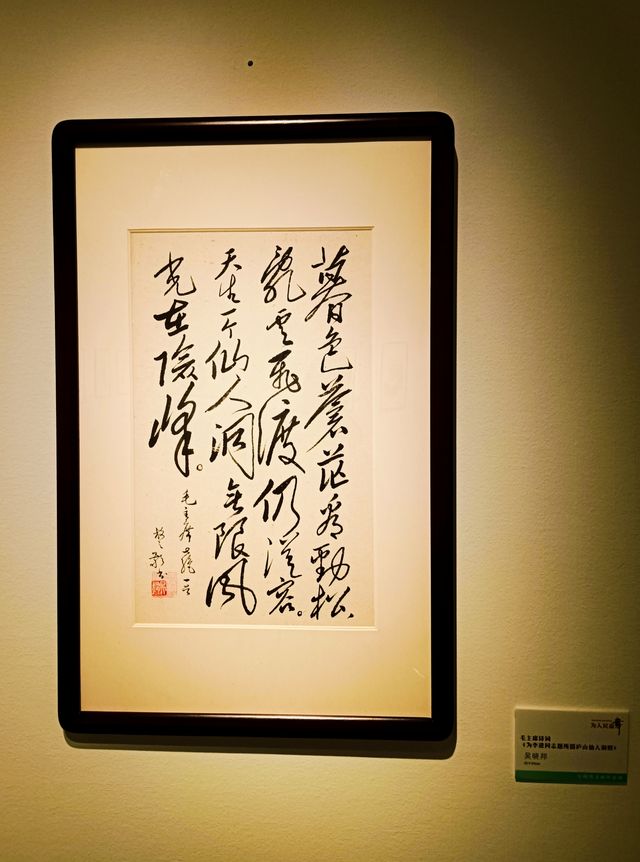 暮色蒼茫看勁松
亂云飛渡仍從容。
天生一个仙人洞無限風
光在險峰。
毛主席
为人民而舞
毛主席诗词
《为李进同志题所摄庐山仙人洞照》
吴晓邦